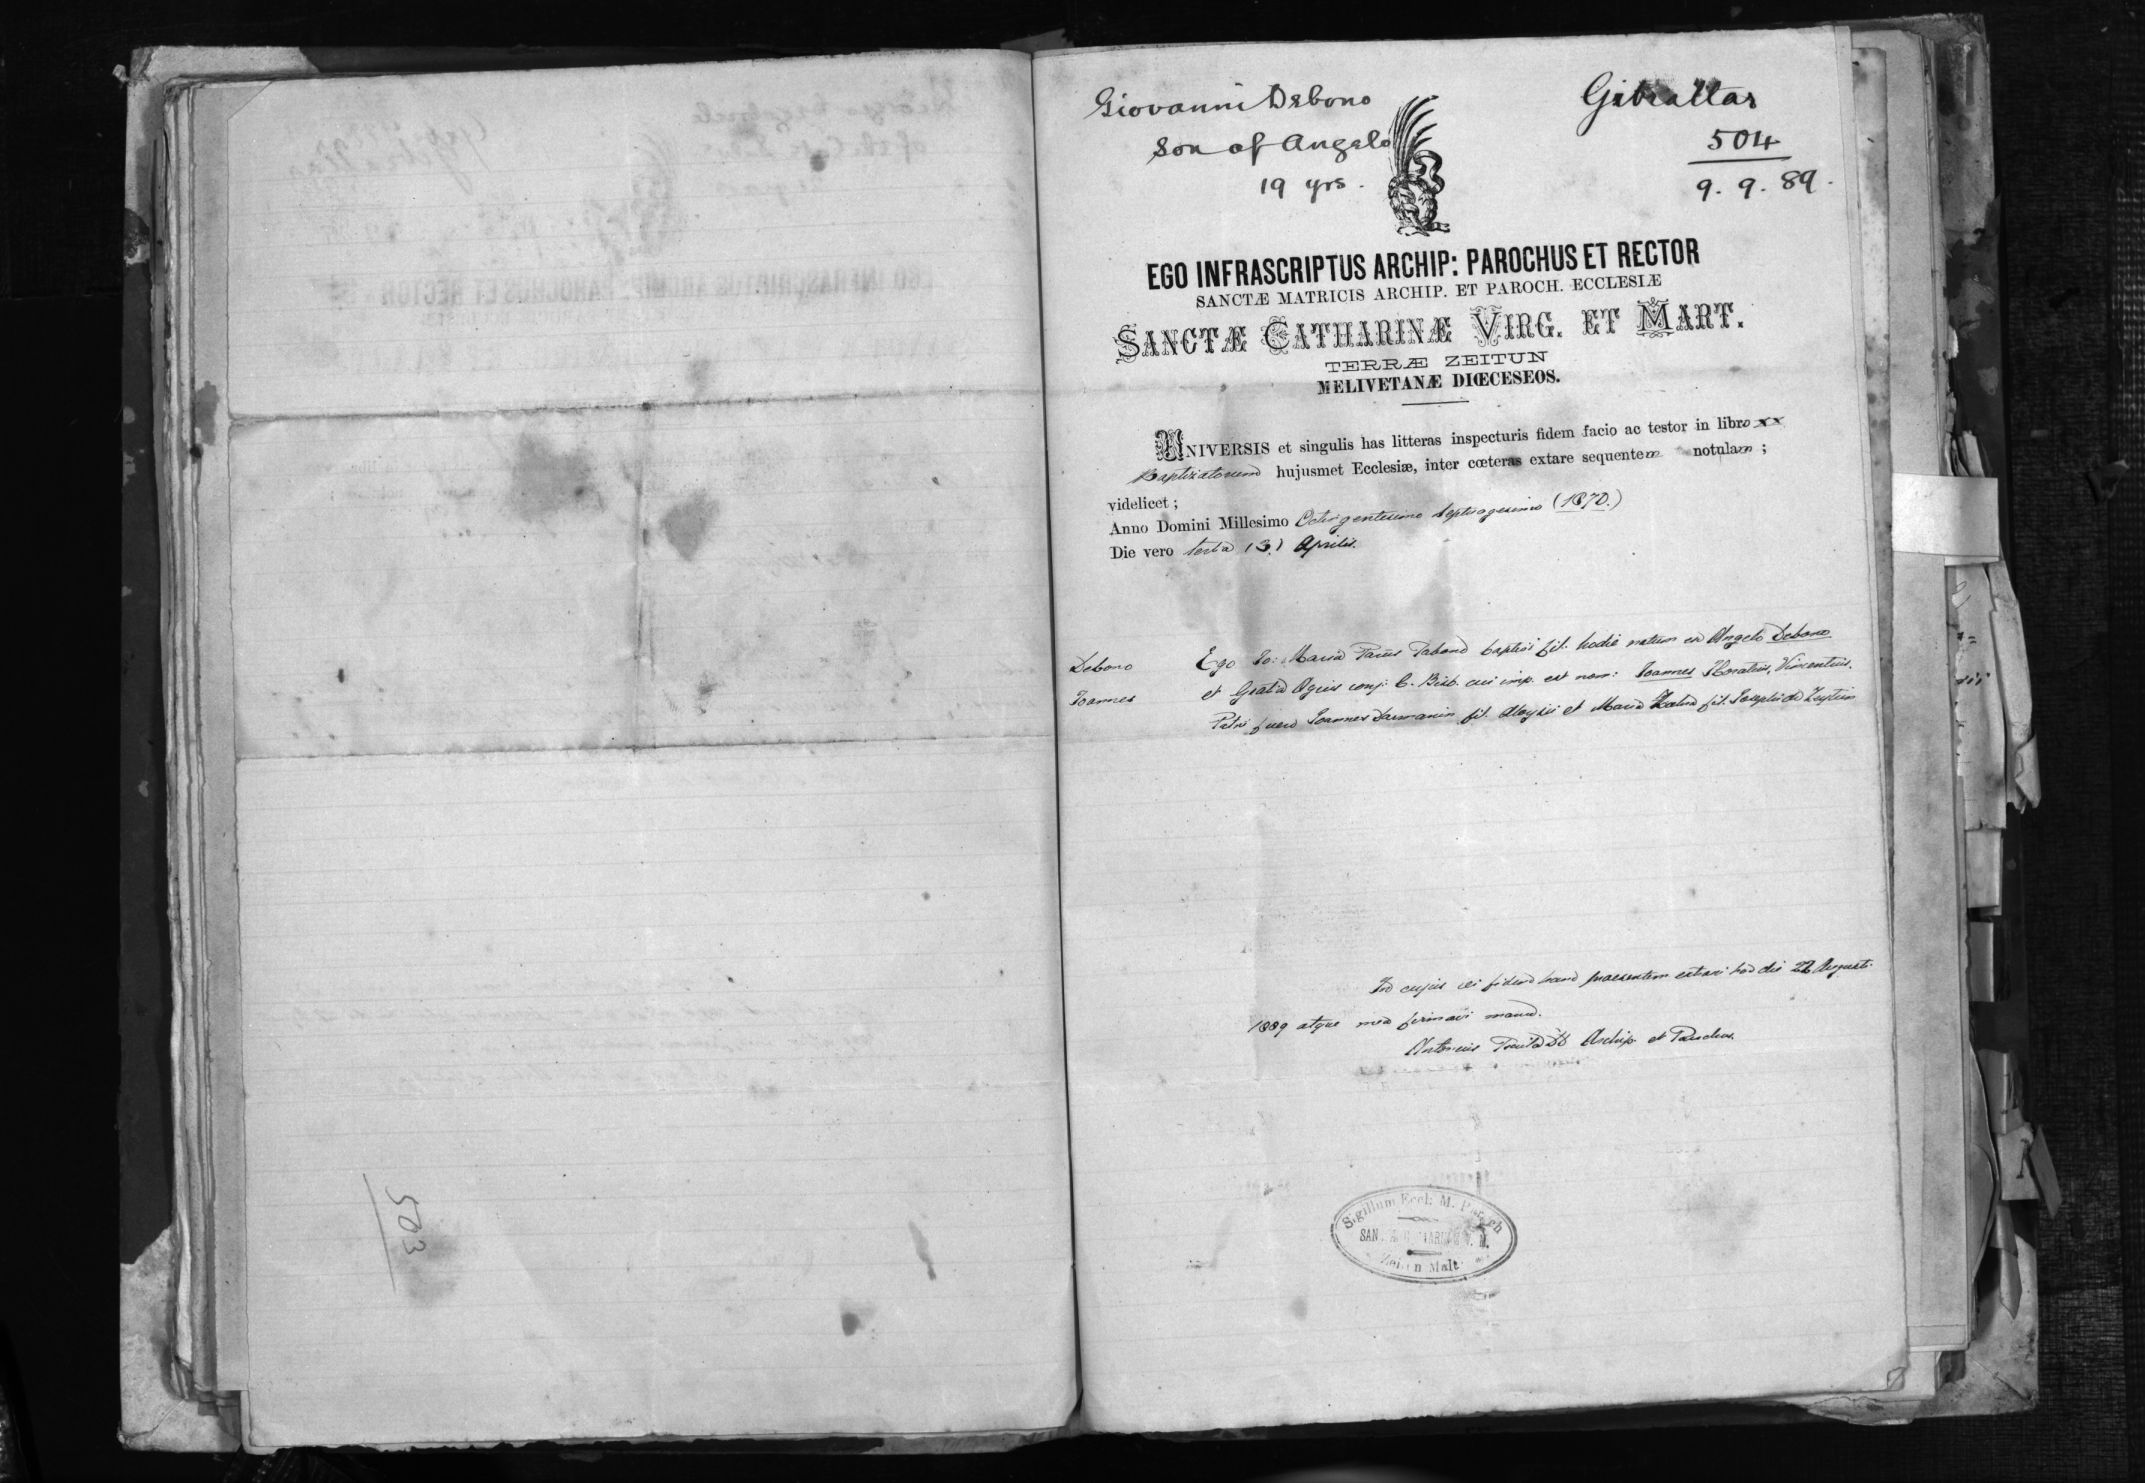 Giovanni Debono
Son of Angelo
19 yrs.
Gibraltar
504
9. 9. 89.
EGO INFRASCRIPTUS ARCHIP: PAROCHUS ET RECTOR
SANCTÆ MATRICIS ARCHIP. ET PAROCH. ECCLESIÆ
SANCTÆ CATHARINÆ VIRG. ET MART.
TERRÆ ZEITUN
MELIVETANÆ DIŒCESEOS.
UNIVERSIS et singulis has litteras inspecturis fidem facio ac testor in libro xx
Baptizatorum hujusmet Ecclesiæ, inter cœteras extare sequentem notulam ;
videlicet ;
Anno Domini Millesimo Octingentesimo septuagesimo (1870.)
Die vero tertia (3.) Aprilis.
Debono
Joannes
Ego Jo: Maria Tabone baptizi fil. hodie natum ex Angelo Debono
et Gratia Agius conj: C. cui imp. est nom: Joannes Horatius, Vincentius.
Patri fuere Joannes Darmanin fil. Aloysii et Maria fil. Josephi de Zeytun
In cujus rei fidem hanc praesentem extraxi hac die 22 Augusti
1889 atque mea firmavi manu.
Antonius Archip. et Parochus.
Sigillum Eccl: M. Paroch
Zeitun Malt
503